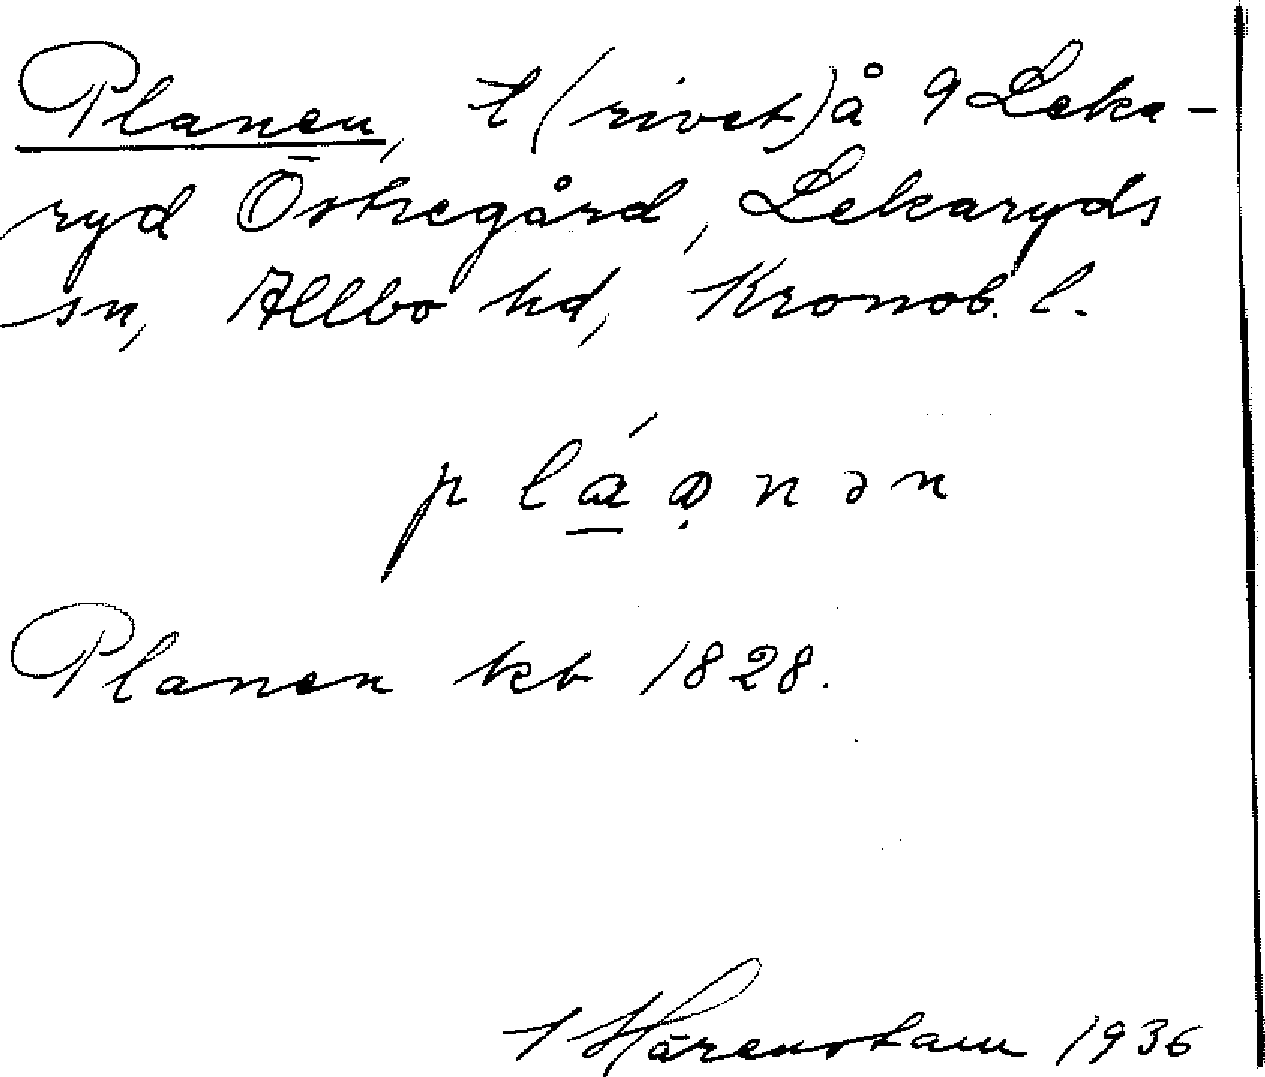 Planen, t (rivet) å 9 Leka-
ryd Östregård, Lekaryds
sn, Allbo hd, Kronob. l.
Planen kb 1828.
Härenstam 1936